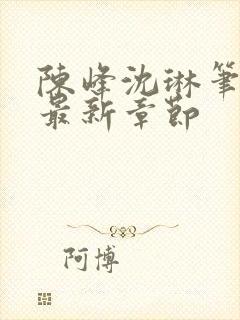 陳峰沈琳筆
最新章節
阿博